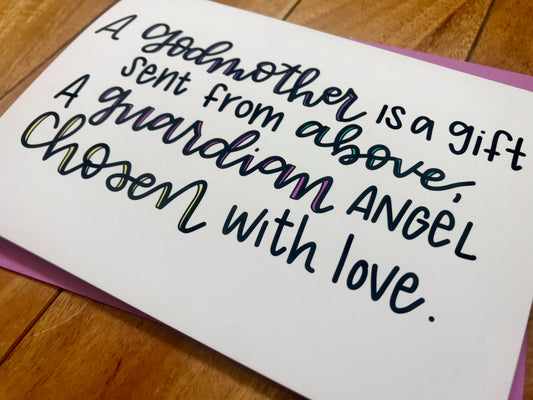 A godmother is a gift
sent from above,
A guardian ANGEL
Chosen with love.